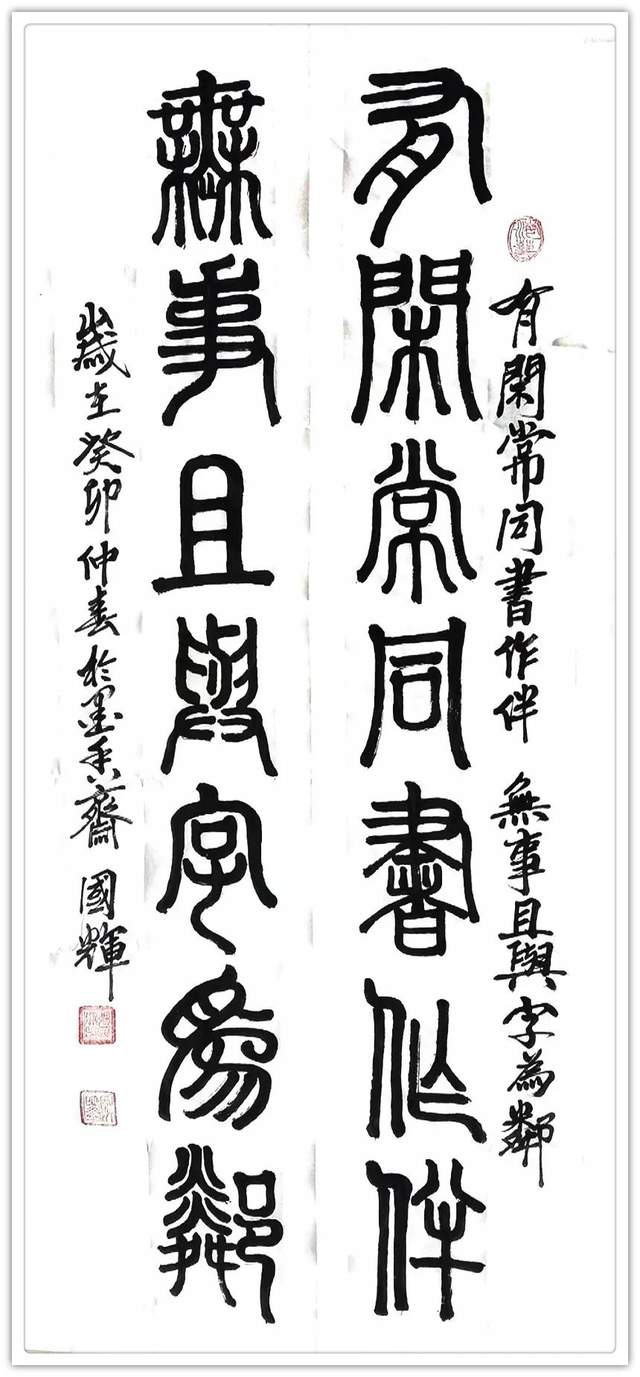 有閑常同書作伴 無事且與字為鄰
有閑常同書作伴
無事且與字為鄰
歲在癸卯仲春於墨香齋 國輝